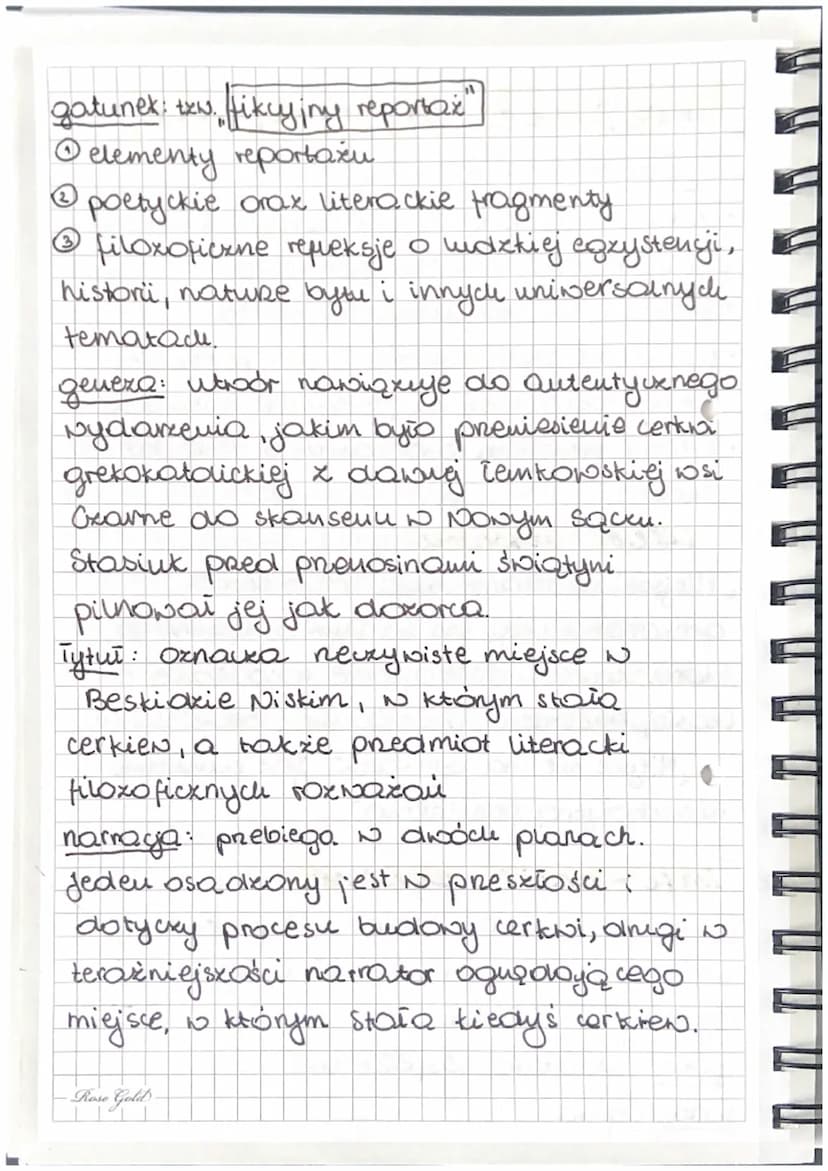 gatunek: tzw. „fikcyjny reportaż"
① elementy reportażu
② poetyckie oraz literackie fragmenty
③ filozoficzne refleksje o ludzkiej egzystencji,
historii, naturze bytu i innych uniwersalnych
tematach.
geneza: utwór nawiązuje do autentycznego
wydarzenia, jakim było przeniesienie cerkwi
grekokatolickiej z dawnej łemkowskiej wsi
Czarne do skansenu w Nowym Sączu.
Stasiuk przed przenosinami świątyni
pilnował jej jak dozorca.
Tytuł: oznacza rzeczywiste miejsce w
Beskidzie Niskim, w którym stała
cerkiew, a także przedmiot literacki
filozoficznych rozważań
narracja: przebiega w dwóch planach.
Jeden osadzony jest w przeszłości i
dotyczy procesu budowy cerkwi, drugi w
teraźniejszości narrator oglądającego
miejsce, w którym stała kiedyś cerkiew.
Rose Gold